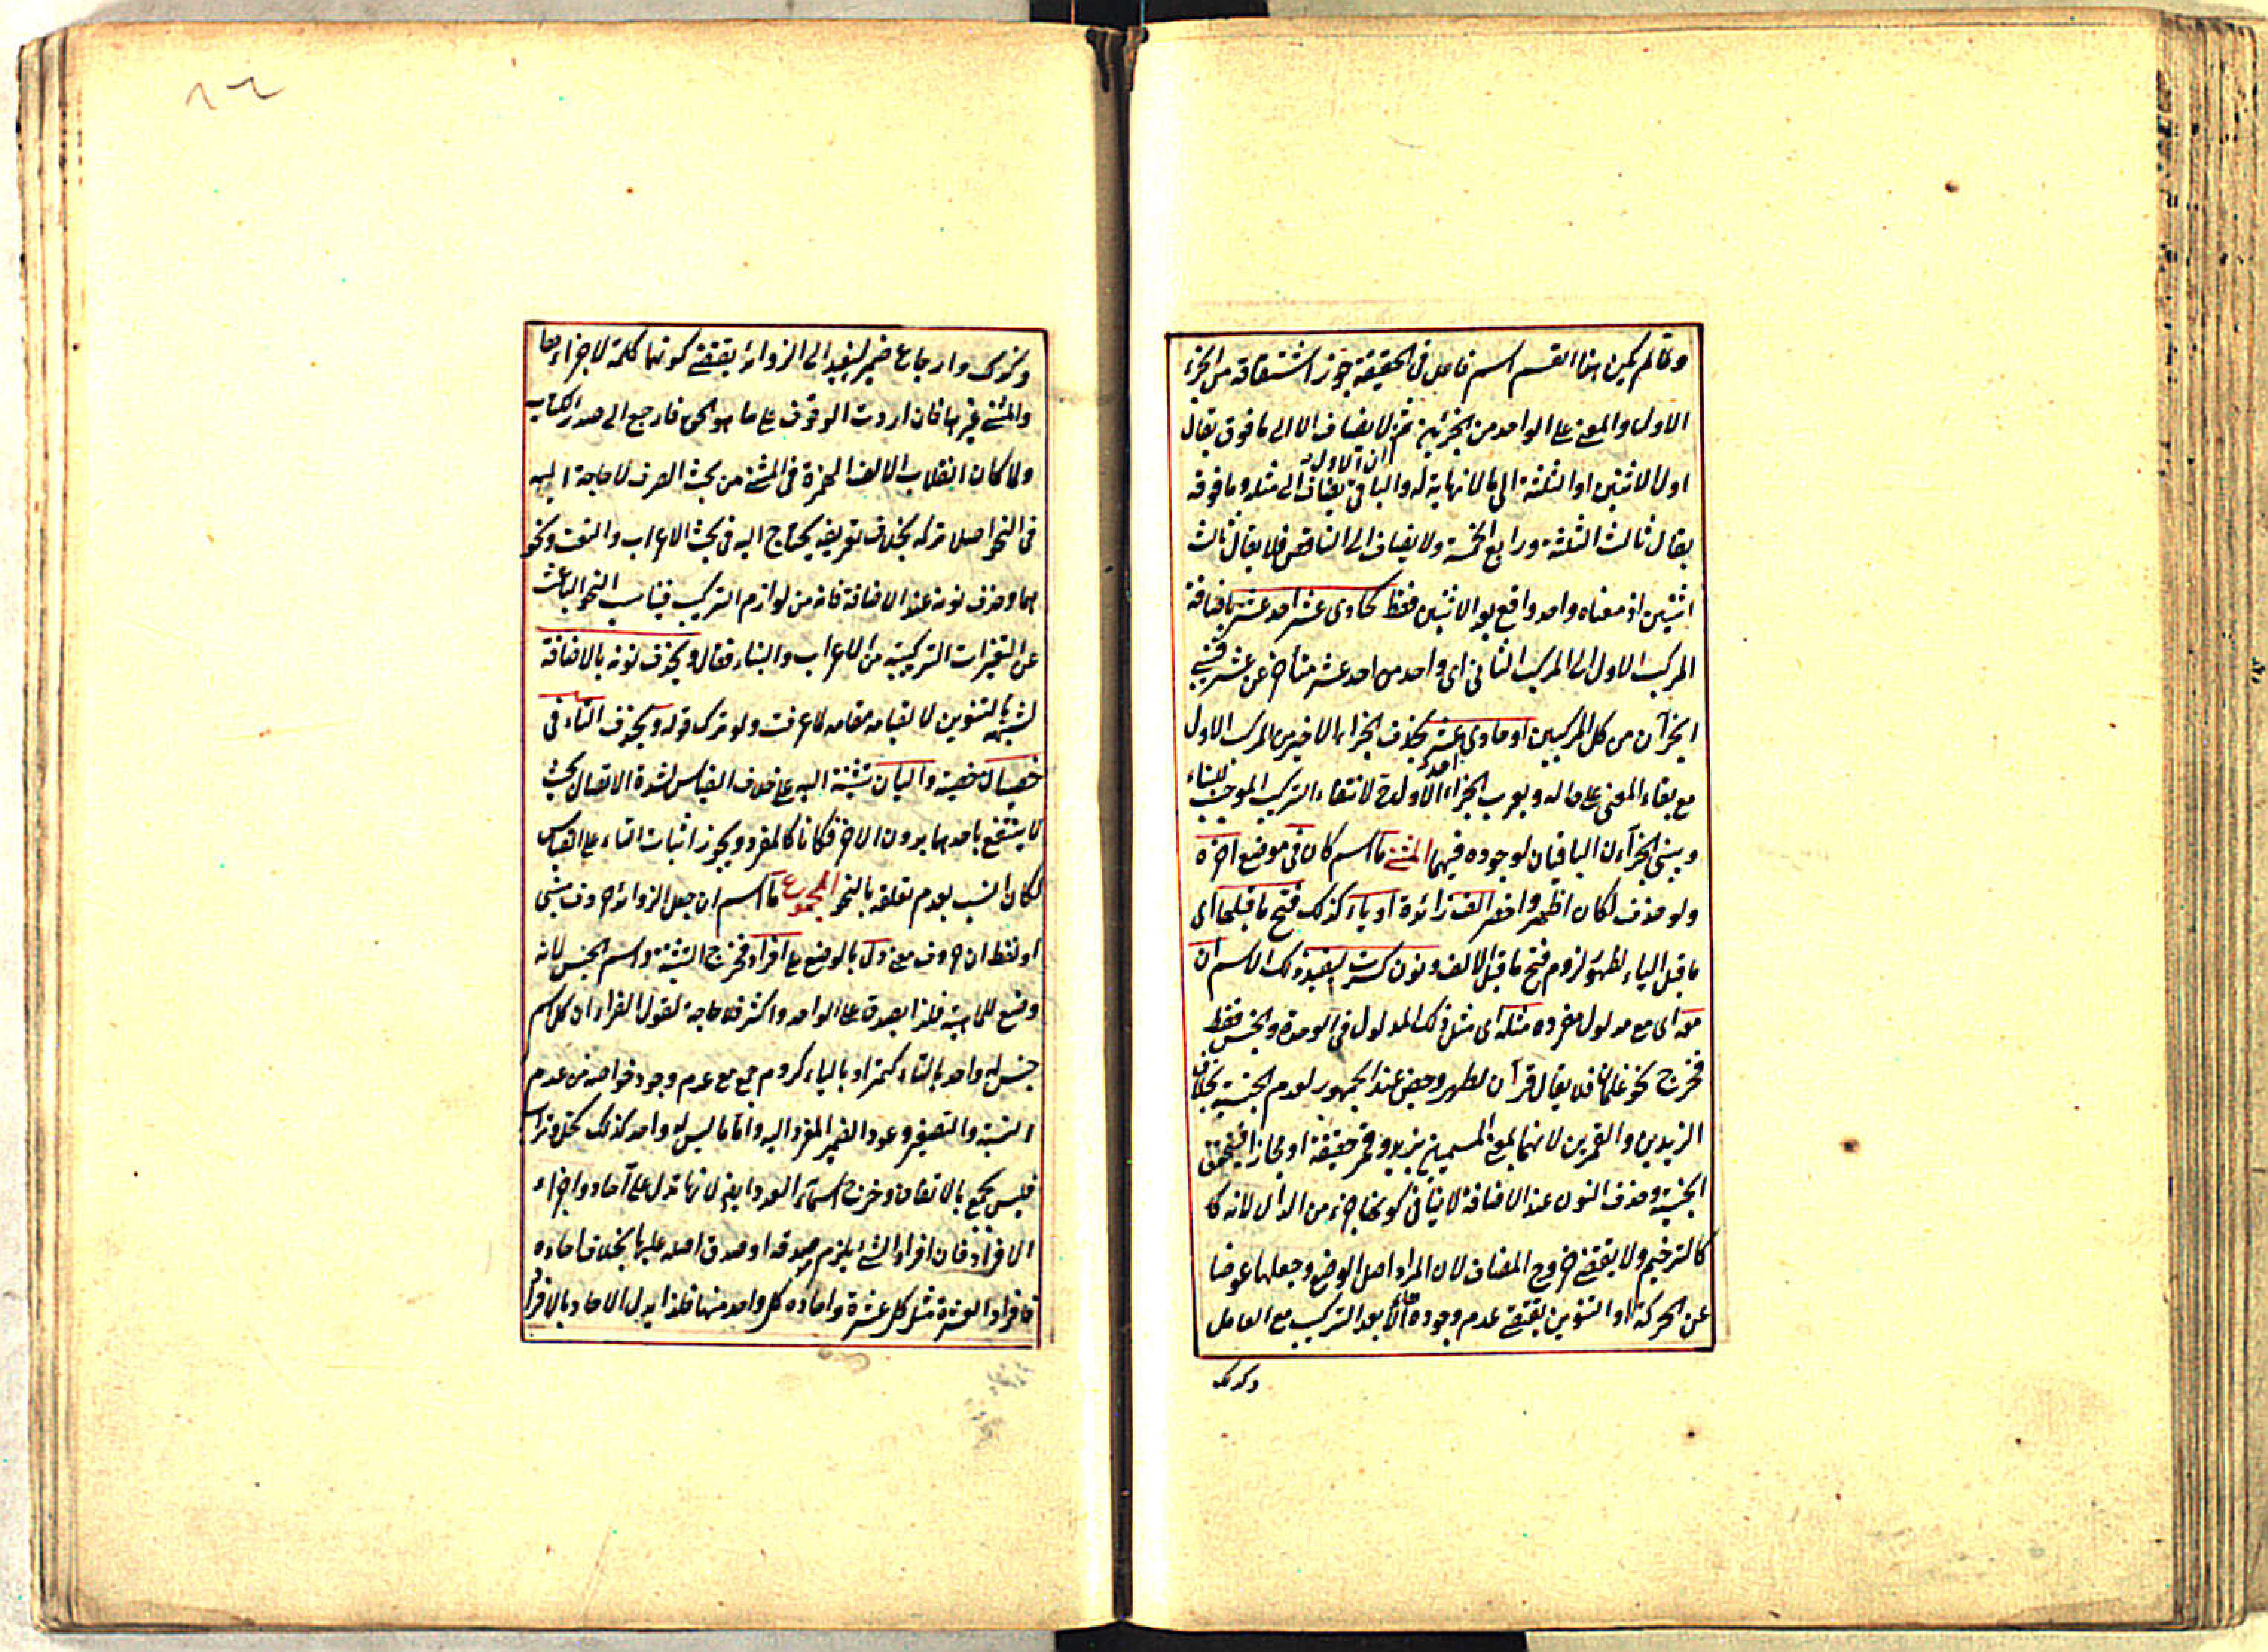 ولما لم يكن هذا القسم اسم فاعل في الحقيقة جوز اشتقاقه من الجزء
الاول والمعنى على الواحد من الجزئين ثم لا يضاف الا الى ما فوق يقال
ان الاول
اول الاثنين او الثلثة الى ما لا نهاية له والباقي يضاف الى مثله وما فوقه
يقال ثالث الثلثة ورابع الخمسة ولا يضاف الى الناقص فلا يقال ثالث
اثنين اذ معناه واحد واقع بعد الاثنين فقط كحادى عشر احد عشر باضافة
المركب الاول الى المركب الثاني اى واحد من احد عشر متأخر عن عشر فيبنى
الجزآن من كل المركبين او حادى احد عشر بحذف الجزء الاخير من المركب الاول
مع بقاء المعنى على حاله ويعرب الجزء الاول ح لانتفاء التركيب الموجب للبناء
ويبنى الجزآن الباقيان لوجوده فيهما المثنى ما اسم كان في موضع آخره
ولو حذف لكان اظهر واخصر الف زائدة او ياء كذلك فتح ما قبلها اى
ما قبل الياء لظهور لزوم فتح ما قبل الالف ونون كسرت ليفيد ذلك الاسم ان
معه اى مع مدلول مفرده مثله اى مثل ذلك المدلول في الوحدة والجنس فقط
فخرج نحو غلمان فلا يقال قرآن لطهر وحيض عند الجمهور لعدم الجنسية بخلاف
الزيدين والقمرين لانهما بمعنى المسميين بزيد وقمر حقيقة او مجازا فيتحقق
الجنسية وحذف النون عند الاضافة لا ينافي كونها جزء من الدال لانه كا
كالترخيم ولا يقتضى خروج المضاف لان المراد اصل الوضع وجعلها عوضا
عن الحركة او التنوين يقتضى عدم وجوده الا بعد التركيب مع العامل
وكذلك
وكذلك وارجاع ضمير ليفيد الى الزوائد يقتضى كونها كلمة لا جزءا معا
والمثنى غيرها فان اردت الوقوف على ما هو الحق فارجع الى صدر الكتاب
ولما كان انقلاب الالف الهمزة في المثنى من بحث الصرف لا حاجة اليه
في النحو اصلا تركه بخلاف تعريفه يحتاج اليه في بحث الاعراب والنعت ونحو
هما وحذف نونه عند الاضافة فانه من لوازم التركيب فيناسب النحو الباحث
عن التغيرات التركيبية من الاعراب والبناء فقال ويحذف نونه بالاضافة
لشبهه بالتنوين لا لقيامه مقامه لما عرفت ولو ترك قوله ويحذف التاء في
خصيان خصية واليان تثنية الية على خلاف القياس لشدة الاتصال بحيث
لا ينتفع باحدهما بدون الاخر فكانا كالمفرد ويجوز اثبات التاء على القياس
لكان انسب لعدم تعلقه بالنحو المجموع ما اسم ان جعل الزوائد حروف مبنى
او لفظ ان حروف معنى دل بالوضع على افراد فخرج التثنية واسم الجنس لانه
وضع للماهية فلذا يصدق على الواحد واكثر فلا حاجة لقول الفراء ان كل اسم
جنس له واحد بالتاء كتمر او بالياء كروم جمع مع عدم وجود خواصه من عدم
النسبة والتصغير وعود الضمير المفرد اليه واما ما ليس له واحد كذلك كخل وتراب
فليس بجمع بالاتفاق وخرج اسماء العدد ايضا لانها تدل على آحاد واجزاء
الافراد فان افراد الشئ يلزم صدقه او صدق اصله عليها بخلاف احاده
فافراد العشرة مثل كل عشرة واحاده كل واحد منها فلذا يدل الاحاد بالافراد